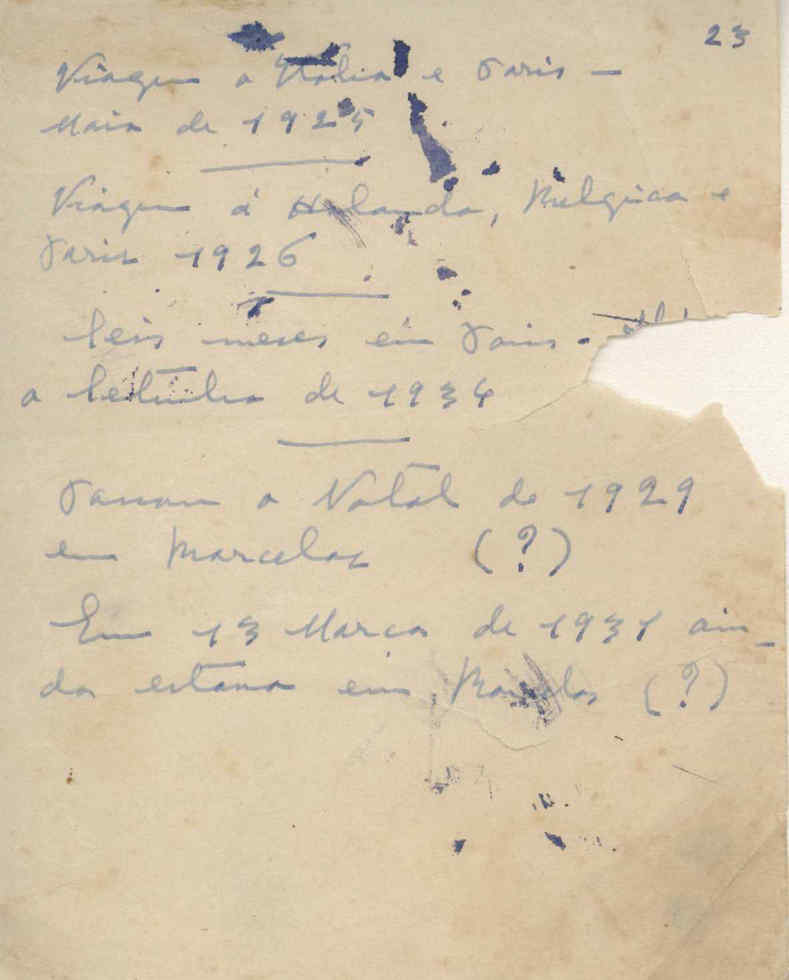 23
Viagem a Itália e Paris —
Maio de 1925
Viagem á Holanda, Belgica e
Paris 1926
Seis meses em Paris -
a Setembro de 1934
Passou o Natal de 1929
em Barcelos (?)
Em 13 Março de 1931 ain-
da estava em Barcelos (?)